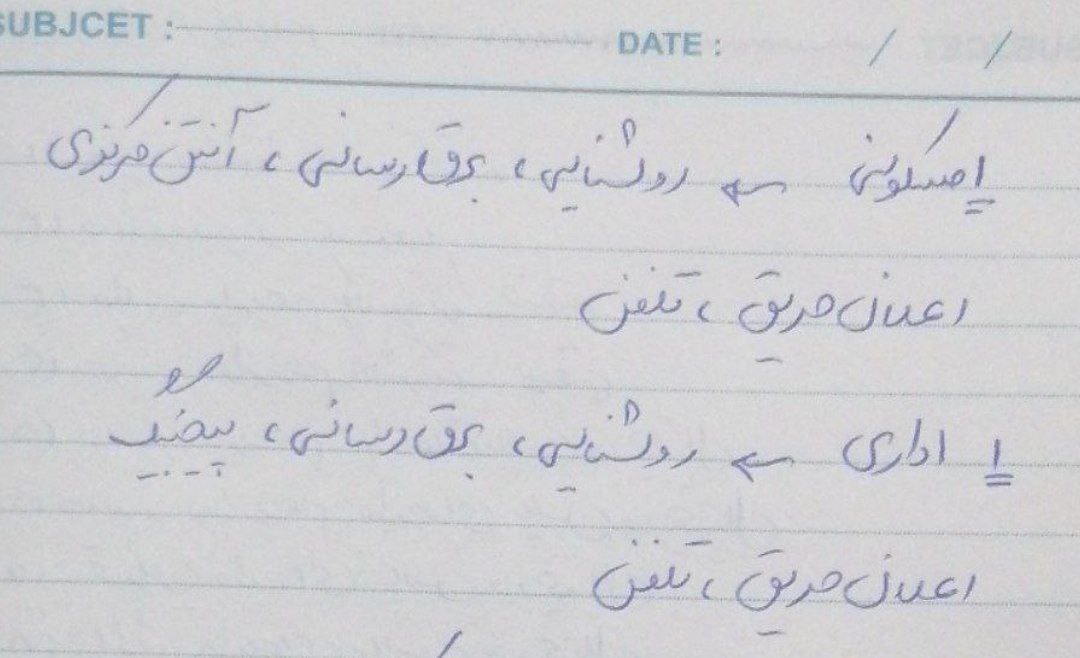 SUBJCET :
DATE : / /
۱ مسکونی ← روشنایی، برق رسانی، آنتن مرکزی
اعلان حریق، تلفن
۱ اداری ← روشنایی، برق رسانی، پیجینگ
اعلان حریق، تلفن